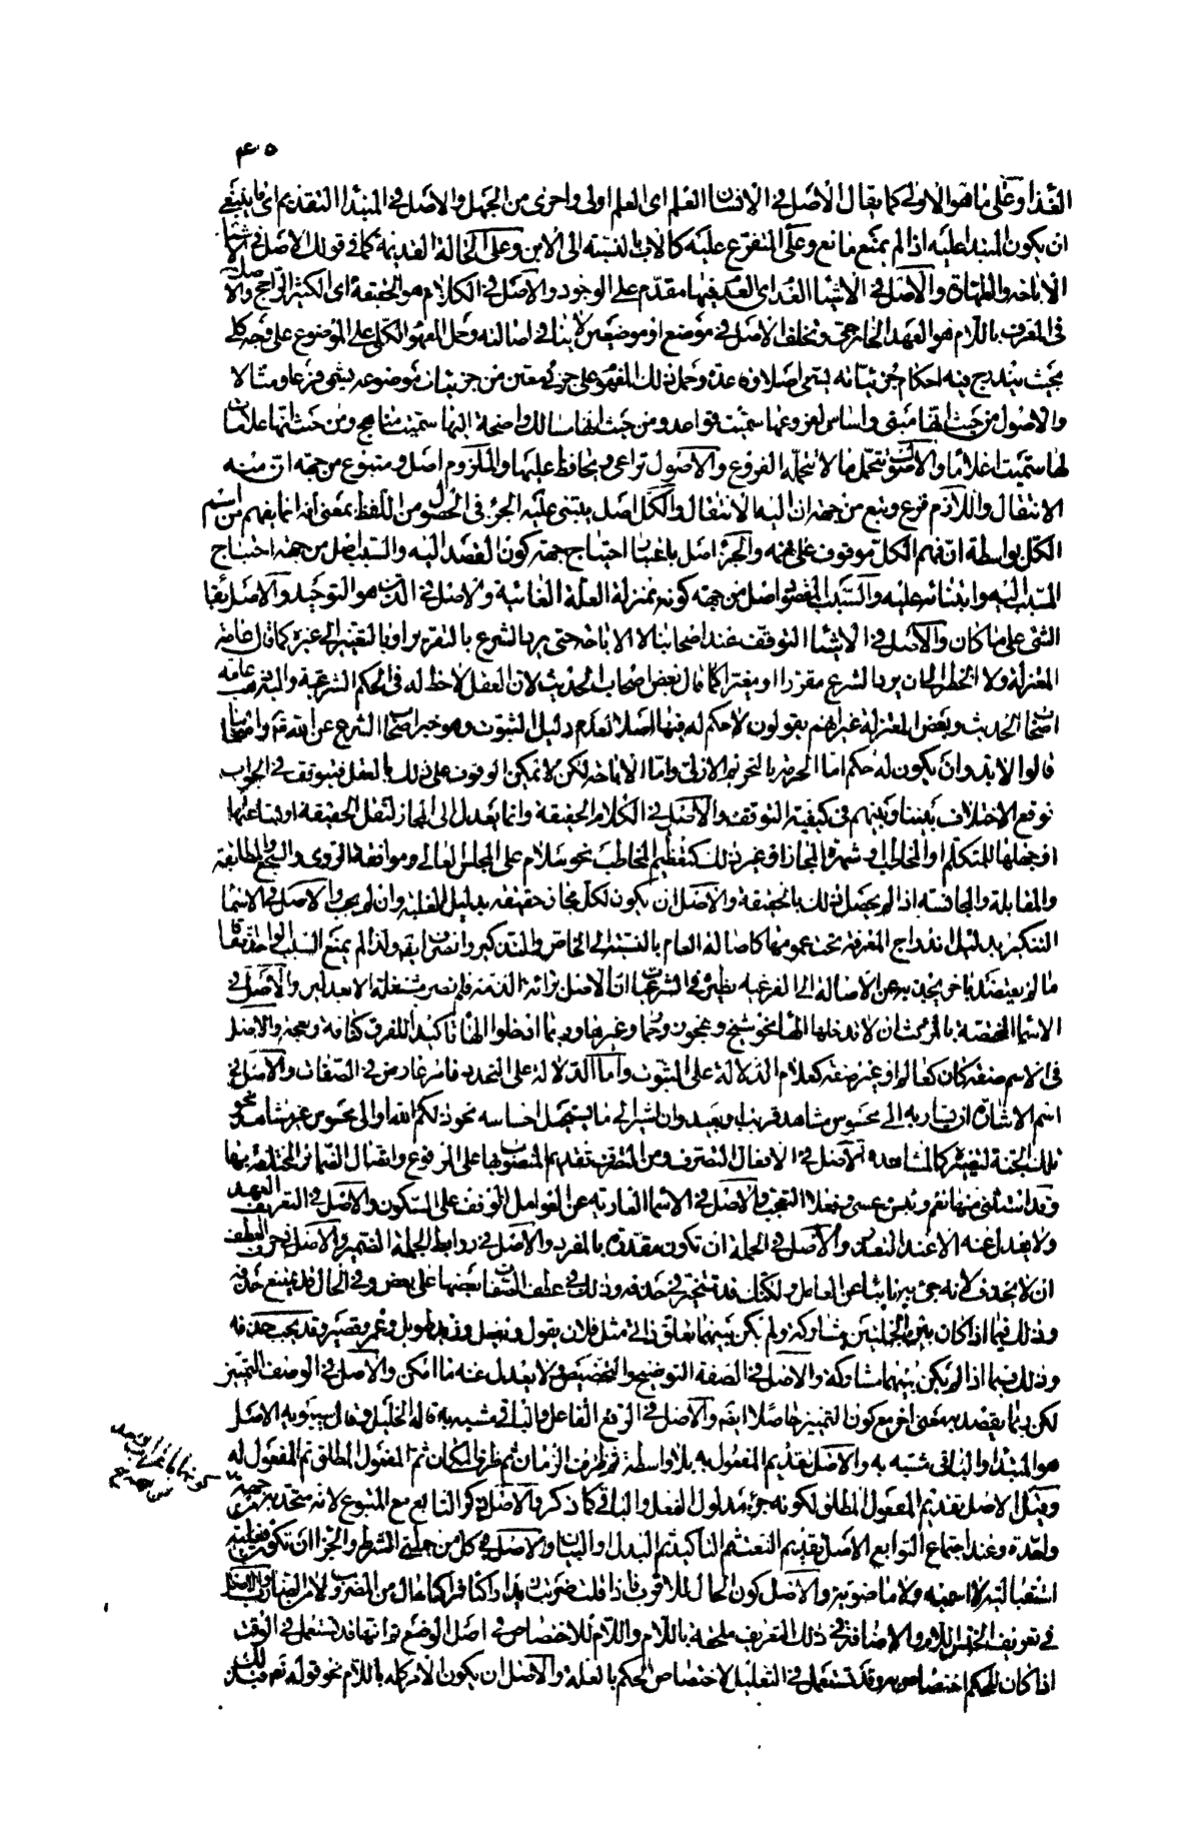 ٤٥
الغذا وعلى ما هو الاولى كما يقال الاصل في الانسان العلم اى العلم اولى واحرى من الجهل والاصل في المبتدا التقديم اى ما ينبغى
ان يكون المبتدا عليه اذا لم يمنع مانع وعلى المتفرع عليه كالاب بالنسبة الى الابن وعلى الحالة القديمة كما في قولك الاصل في الاشيا
الاباحة والطهارة والاصل في الاشيا العدم اى العدم فيها مقدم على الوجود والاصل في الكلام هو الحقيقة اى الكثير الراجح والاصل
في المعرف باللام هو العهد الخارجى وتخلف الاصل في موضع او موضعين لا ينافى اصالته وحمل المفهوم الكلى على الموضوع على وجه كلى
بحيث يندرج فيه احكام جزئياته يسمى اصلا وقاعدة وحمل ذلك المفهوم على جزئى معين من جزئيات موضوعه يسمى فرعا ومثالا
والاصول من حيث انها مبنى واساس لفروعها سميت قواعد ومن حيث انها مسالك واضحة اليها سميت مناهج ومن حيث انها علامات
لها سميت اعلاما والاصول تتحمل ما لا تتحمله الفروع والاصول تراعى ويحافظ عليها والملزوم اصل ومتبوع من جهة ان منه
الانتقال واللازم فرع وتبع من جهة ان اليه الانتقال والكل اصل يبتنى عليه الجزء في الحصول من اللفظ بمعنى انه انما يفهم من اسم
الكل بواسطة ان فهم الكل موقوف على فهمه والجزء اصل باعتبار احتياج جهة كون القصد اليه والسبب اصل من جهة احتياج
المسبب اليه وابتنائه عليه والمسبب المقصود اصل من جهة كونه بمنزلة العلة الغائية والاصل في الدين هو التوحيد والاصل بقا
الشى على ما كان والاصل في الاشيا التوقف عند اصحابنا لا الاباحة حتى يرد الشرع بالتقرير او بالتغيير الى غيره كما قال عامة
المعتزلة ولا الحظر الى ان يرد الشرع مقررا او مغيرا كما قال بعض اصحاب الحديث لان العقل لا حظ له في الحكم الشرعى واليه ذهب عامة
اصحاب الحديث وبعض المعتزلة غير انهم يقولون لا حكم له فيها اصلا لعدم دليل الثبوت وهو خبر اصحاب الشرع عن الله تعالى واصحابنا
قالوا لا بد وان يكون له حكم اما الحرمة بالتحريم الازلى واما الاباحة لكن لا يمكن الوقوف على ذلك بالعقل فيتوقف في الجواب
فوقع الاختلاف بيننا وبينهم في كيفية التوقف والاصل في الكلام الحقيقة وانما يعدل الى المجاز لثقل الحقيقة او بشاعتها
او جهلها للمتكلم او المخاطب او شهرة المجاز او غير ذلك كتعظيم المخاطب نحو سلام على المجلس العالى وموافقة الروى والسجع والمطابقة
والمقابلة والمجانسة اذا لم يحصل ذلك بالحقيقة والاصل ان يكون لكل مجاز حقيقة بدليل الغلبة وان لم يجب والاصل في الاسما
التنكير بدليل اندراج المعرفة تحت عمومها كاصالة العام بالنسبة الى الخاص والتذكير والصرف ايضا ولذا لم يمنع السبب الواحد اتفاقا
ما لم يعتضد باخر يجذبه عن الاصالة الى الفرعية نظيره في الشرعيات ان الاصل براءة الذمة فلم تصر مشتغلة الا بعدلين والاصل في
الاسما المختصة بالمؤنث ان لا تدخلها الها نحو شيخ وعجوز وحمار وغيرها وربما ادخلوا الها تاكيدا للفرق كناقة ونعجة والاصل
في الاسم صفة كان كعالم او غير صفة كغلام الدلالة على الثبوت واما الدلالة على التجدد فامر عارض في الصفات والاصل في
اسم الاشارة ان يشار به الى محسوس مشاهد قريب او بعيد وان اشير الى ما يستحيل احساسه نحو ذلكم الله او الى محسوس غير مشاهد نحو
تلك الجنة لتصييره كالمشاهد والاصل في الافعال التصرف ومن التصرف تقديم المنصوب بها على المرفوع واتصال الضمائر المختلفة بها
وقد استثنى منها نعم وبئس وعسى وفعلا التعجب والاصل في الاسما العارية عن العوامل الوقف على السكون والاصل في التعريف العهد
ولا يعدل عنه الا عند التعذر والاصل في الجملة ان تكون مقدرة بالمفرد والاصل في روابط الجملة الضمير والاصل في حرف العطف
ان لا يحذف لانه جئ به نائبا عن العامل ولكنك قد تتخير في حذفه وذلك في عطف الصفات بعضها على بعض وفي الحال قد يمتنع حذفه
وذلك فيما اذا كان بين الجملتين مشاركة ولم يكن بينهما تعلق ذاتى مثل فلان يقول ويفعل وزيد طويل وعمرو قصير وقد يجب حذفه
وذلك فيما اذا لم يكن بينهما مشاركة والاصل في الصفة التوضيح والتخصيص ولا يعدل عنه ما امكن والاصل في الوصف التمييز
لكن ربما يقصد به معنى اخر مع كون التمييز حاصلا ايضا والاصل في الرفع الفاعل والباقى مشبه به قاله الخليل وقال سيبويه الاصل
هو المبتدا والباقى مشبه به والاصل تقديم المفعول به بلا واسطة ثم ظرف الزمان ثم ظرف المكان ثم المفعول المطلق ثم المفعول له
وقيل الاصل تقديم المفعول المطلق لكونه جزء مدلول الفعل والباقى كما ذكر والاصل ذكر التابع مع المتبوع لانه متحد به من جهة
واحدة وعند اجتماع التوابع الاصل تقديم النعت ثم التاكيد ثم البدل او البيان والاصل في كل من جملتى الشرط والجزا ان تكون فعلية
استقبالية لا اسمية ولا ماضوية والاصل كون الحال للاقرب فاذا قلت ضربت زيدا راكبا فراكبا حال من المضروب لا من الضارب والاصل
في تعريف الجنس اللام والاضافة في ذلك التعريف ملحقة باللام واللام للاختصاص في اصل الوضع ثم انها قد تستعمل في الوقت
اذا كان للحكم اختصاص به وقد تستعمل في التعليل لاختصاص الحكم بالعلة والاصل ان يكون الامر كله باللام نحو قوله تعالى فبذلك